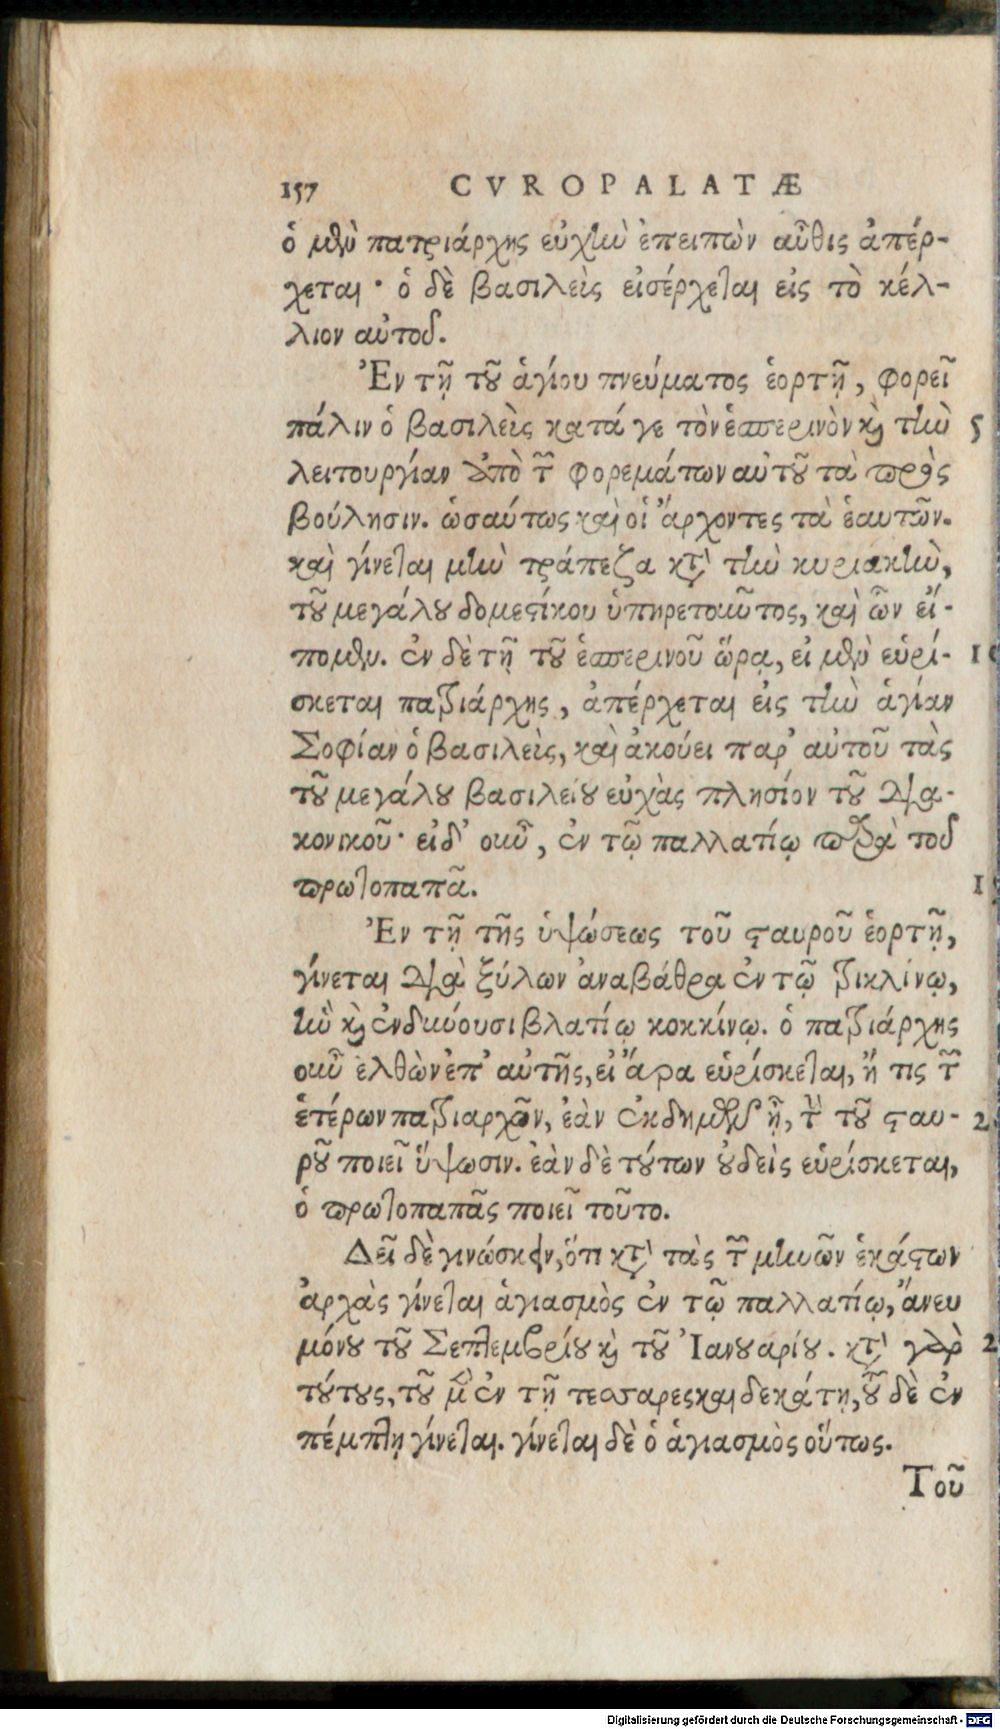 157 CVROPALATÆ
ὁ μὲν πατριάρχης εὐχὴν ἐπειπὼν αὖθις ἀπέρ-
χεται· ὁ δὲ βασιλεὶς εἰσέρχεται εἰς τὸ κέλ-
λιον αὐτοῦ.
Ἐν τῇ τοῦ ἁγίου πνεύματος ἑορτῇ, φορεῖ
πάλιν ὁ βασιλεὶς κατά γε τὸν ἑσπερινὸν καὶ τὴν 5
λειτουργίαν ἀπὸ τῶν φορεμάτων αὐτοῦ τὰ πρὸς
βούλησιν. ὡσαύτως καὶ οἱ ἄρχοντες τὰ ἑαυτῶν.
καὶ γίνεται μὴν τράπεζα κατὰ τὴν κυριακὴν,
τοῦ μεγάλου δομεστίκου ὑπηρετοῦντος, καὶ ὧν εἴ-
πομεν. ἐν δὲ τῇ τοῦ ἑσπερινοῦ ὥρᾳ, εἰ μὲν εὑρί- 10
σκεται πατριάρχης, ἀπέρχεται εἰς τὴν ἁγίαν
Σοφίαν ὁ βασιλεὶς, καὶ ἀκούει παρ' αὐτοῦ τὰς
τοῦ μεγάλου βασιλείου εὐχὰς πλησίον τοῦ δια-
κονικοῦ· εἰ δ' οὖν, ἐν τῷ παλλατίῳ παρὰ τοῦ
πρωτοπαπᾶ. 15
Ἐν τῇ τῆς ὑψώσεως τοῦ σταυροῦ ἑορτῇ,
γίνεται διὰ ξύλων ἀναβάθρα ἐν τῷ τρικλίνῳ,
ἣν καὶ ἐνδύουσι βλατίῳ κοκκίνῳ. ὁ πατριάρχης
οὖν ἐλθὼν ἐπ' αὐτῆς, εἰ ἄρα εὑρίσκεται, ἤ τις τῶν
ἑτέρων πατριαρχῶν, ἐὰν ἐκδημῶν ᾖ, τὴν τοῦ σταυ- 2
ροῦ ποιεῖ ὕψωσιν. ἐὰν δὲ τούτων οὐδεὶς εὑρίσκεται,
ὁ πρωτοπαπᾶς ποιεῖ τοῦτο.
Δεῖ δὲ γινώσκειν, ὅτι κατὰ τὰς τῶν μηνῶν ἑκάστων
ἀρχὰς γίνεται ἁγιασμὸς ἐν τῷ παλλατίῳ, ἄνευ
μόνου τοῦ Σεπτεμβρίου καὶ τοῦ Ἰανουαρίου. κατὰ γὰρ 2
τούτους, τοῦ μὲν ἐν τῇ τεσσαρεσκαιδεκάτῃ, τοῦ δὲ ἐν
πέμπτῃ γίνεται. γίνεται δὲ ὁ ἁγιασμὸς οὕτως.
Τοῦ
Digitalisierung gefördert durch die Deutsche Forschungsgemeinschaft - DFG